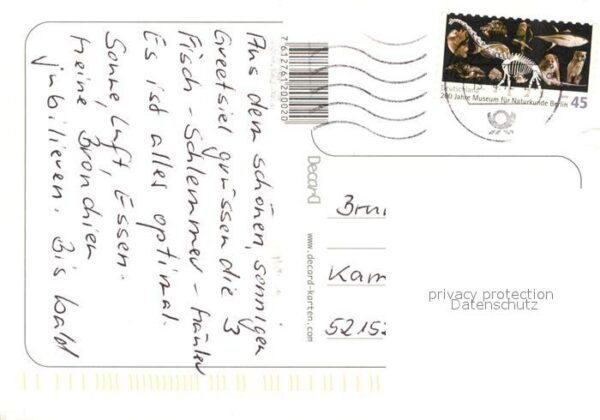 Aus dem schönen, sonnigen
Greetsiel grüssen die 3
Fisch-Schlemmer-Mäuler
Es ist alles optimal.
Sonne, Luft, Essen.
Meine Bronchien
jubilieren. Bis bald
7612761200020
Decard
www.decard-karten.com
Deutschland
200 Jahre Museum für Naturkunde Berlin
45
Brun
Kam
52152
privacy protection
Datenschutz